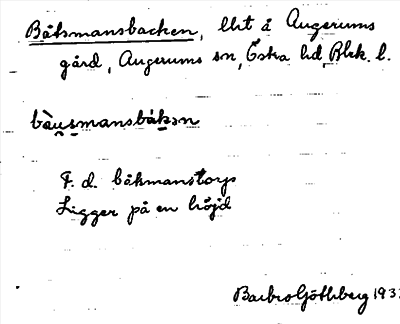 Båtsmansbacken, lht å Augerums
gård, Augerums sn, Östra hd, Blek. l.
bàu̯s̱mansbák̠ən
F. d. båtmanstorp
Ligger på en höjd
Barbro Göthberg